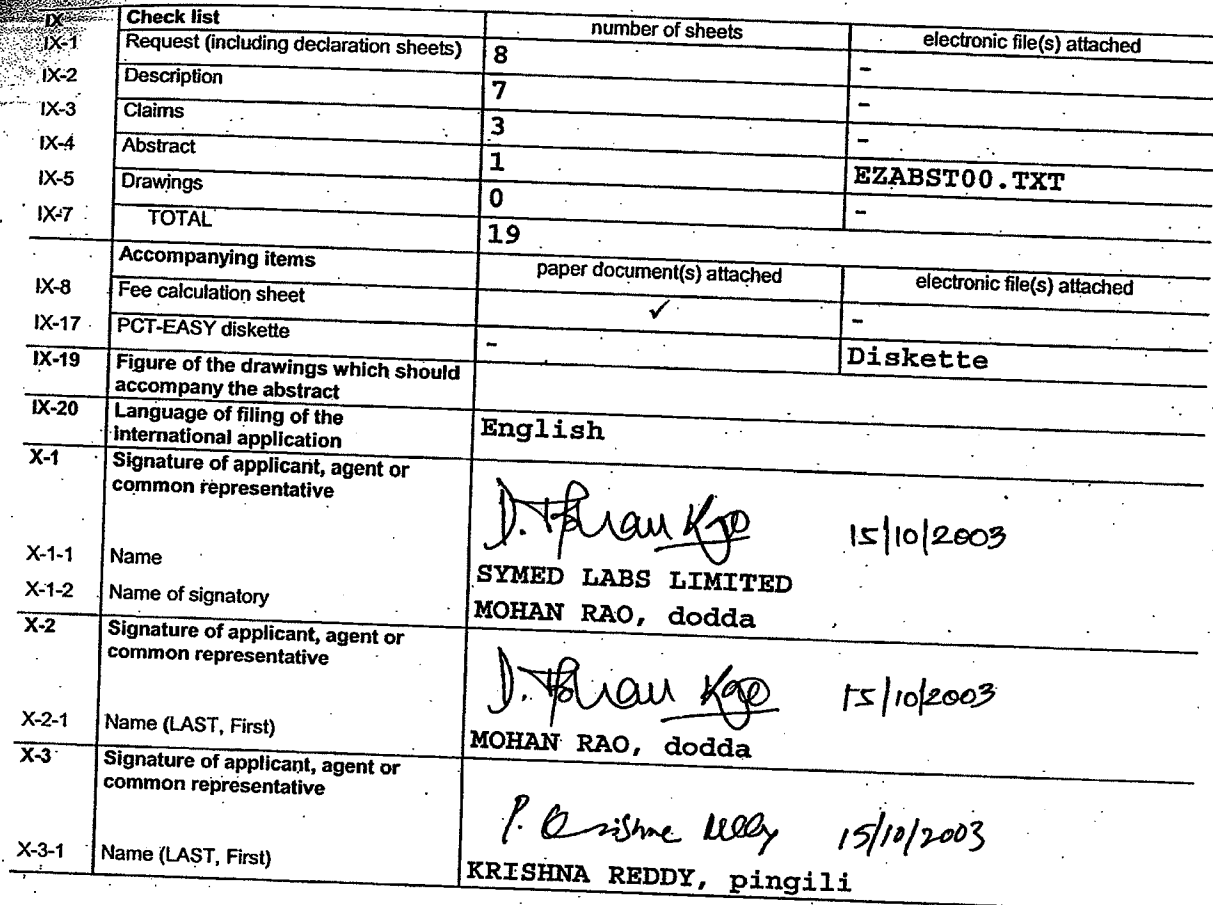 IX Check list number of sheets electronic file(s) attached
IX-1 Request (including declaration sheets) 8 -
IX-2 Description 7 -
IX-3 Claims 3 -
IX-4 Abstract 1 EZABST00.TXT
IX-5 Drawings 0 -
IX-7 TOTAL 19
Accompanying items paper document(s) attached electronic file(s) attached
IX-8 Fee calculation sheet ✓ -
IX-17 PCT-EASY diskette - Diskette
IX-19 Figure of the drawings which should
accompany the abstract
IX-20 Language of filing of the
international application English
X-1 Signature of applicant, agent or
common representative
D. Mohan Rao 15/10/2003
X-1-1 Name SYMED LABS LIMITED
X-1-2 Name of signatory MOHAN RAO, dodda
X-2 Signature of applicant, agent or
common representative
D. Mohan Rao 15/10/2003
X-2-1 Name (LAST, First) MOHAN RAO, dodda
X-3 Signature of applicant, agent or
common representative
P. Krishna Reddy 15/10/2003
X-3-1 Name (LAST, First) KRISHNA REDDY, pingili